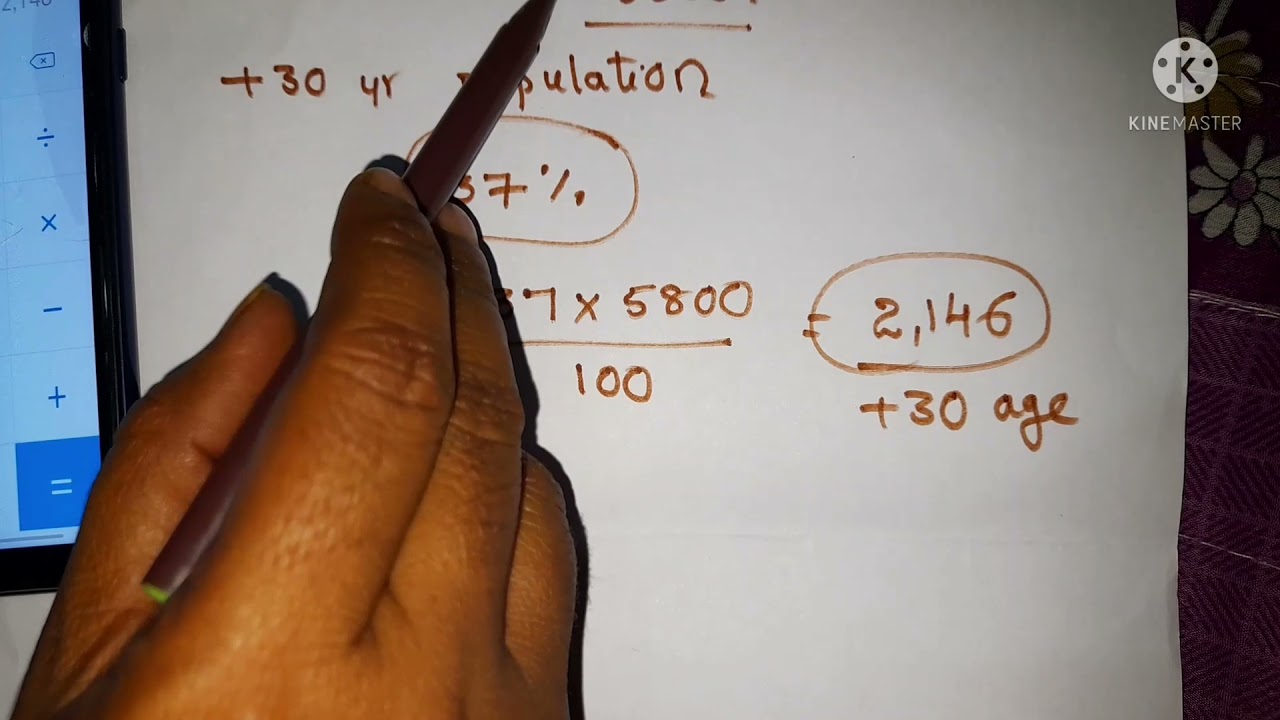 2,146
+30 yr population
37%
37 x 5800 = 2,146
100
+30 age
KINEMASTER